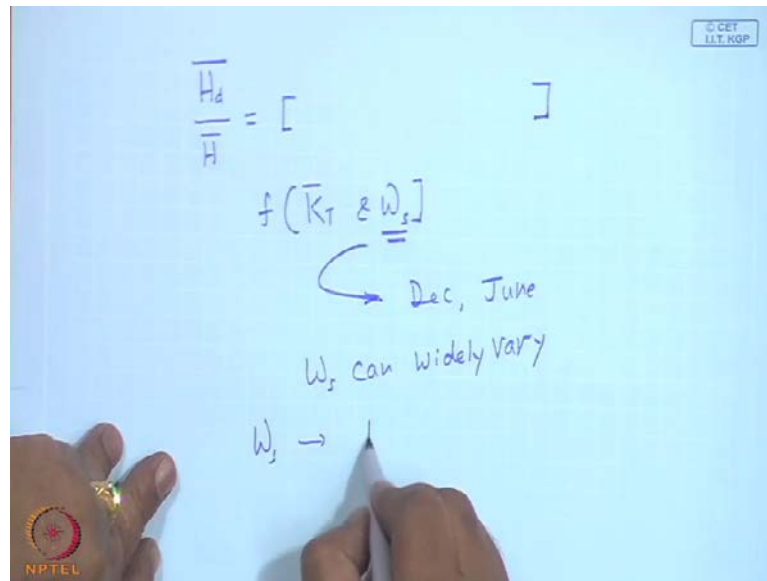 © CET
I.I.T. KGP
H̅d / H̅ = [ ]
f (K̅T & Ws]
Dec, June
Ws can widely vary
Ws →
NPTEL